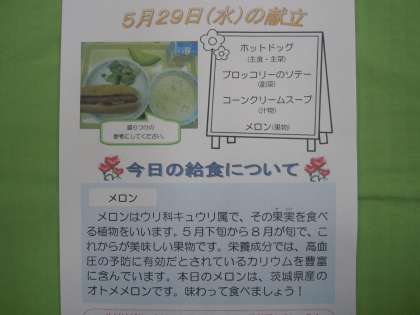 5月29日(水)の献立
ホットドッグ
(主食・主菜)
ブロッコリーのソテー
(副菜)
コーンクリームスープ
(汁物)
メロン(果物)
盛りつけの
参考にしてください。
今日の給食について
メロン
メロンはウリ科キュウリ属で、その果実を食べ
る植物をいいます。5月下旬から8月が旬で、こ
れからが美味しい果物です。栄養成分では、高血
圧の予防に有効だとされているカリウムを豊富
に含んでいます。本日のメロンは、茨城県産の
オトメメロンです。味わって食べましょう！